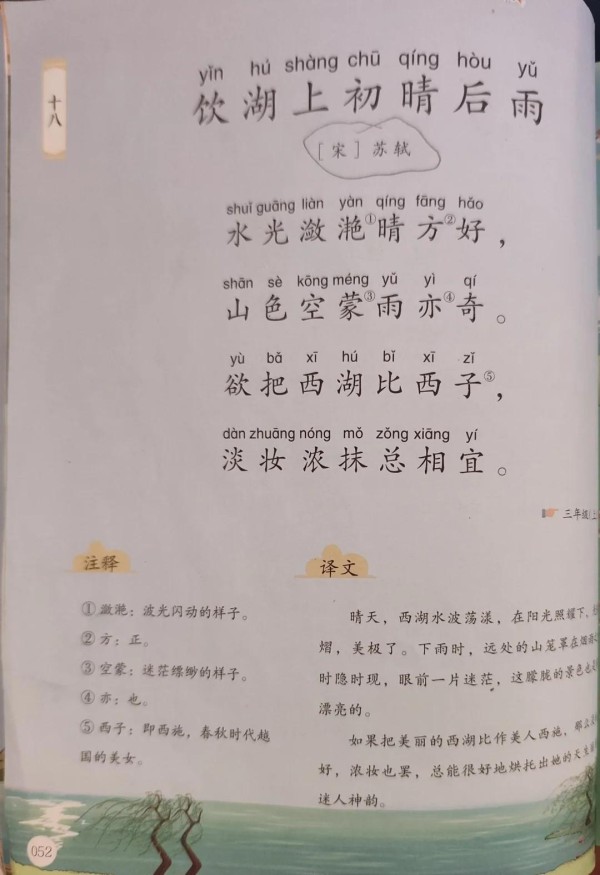 十八
yǐn hú shàng chū qíng hòu yǔ
饮湖上初晴后雨
[宋] 苏轼
shuǐ guāng liàn yàn qíng fāng hǎo
水光潋滟①晴方②好，
shān sè kōng méng yǔ yì qí
山色空蒙③雨亦④奇。
yù bǎ xī hú bǐ xī zǐ
欲把西湖比西子⑤，
dàn zhuāng nóng mǒ zǒng xiāng yí
淡妆浓抹总相宜。
三年级(上
注释
①潋滟：波光闪动的样子。
②方：正。
③空蒙：迷茫缥缈的样子。
④亦：也。
⑤西子：即西施，春秋时代越
国的美女。
译文
晴天，西湖水波荡漾，在阳光照耀下，
熠，美极了。下雨时，远处的山笼罩在烟
时隐时现，眼前一片迷茫，这朦胧的景色也
漂亮的。
如果把美丽的西湖比作美人西施，那么
好，浓妆也罢，总能很好地烘托出她的天生
迷人神韵。
052